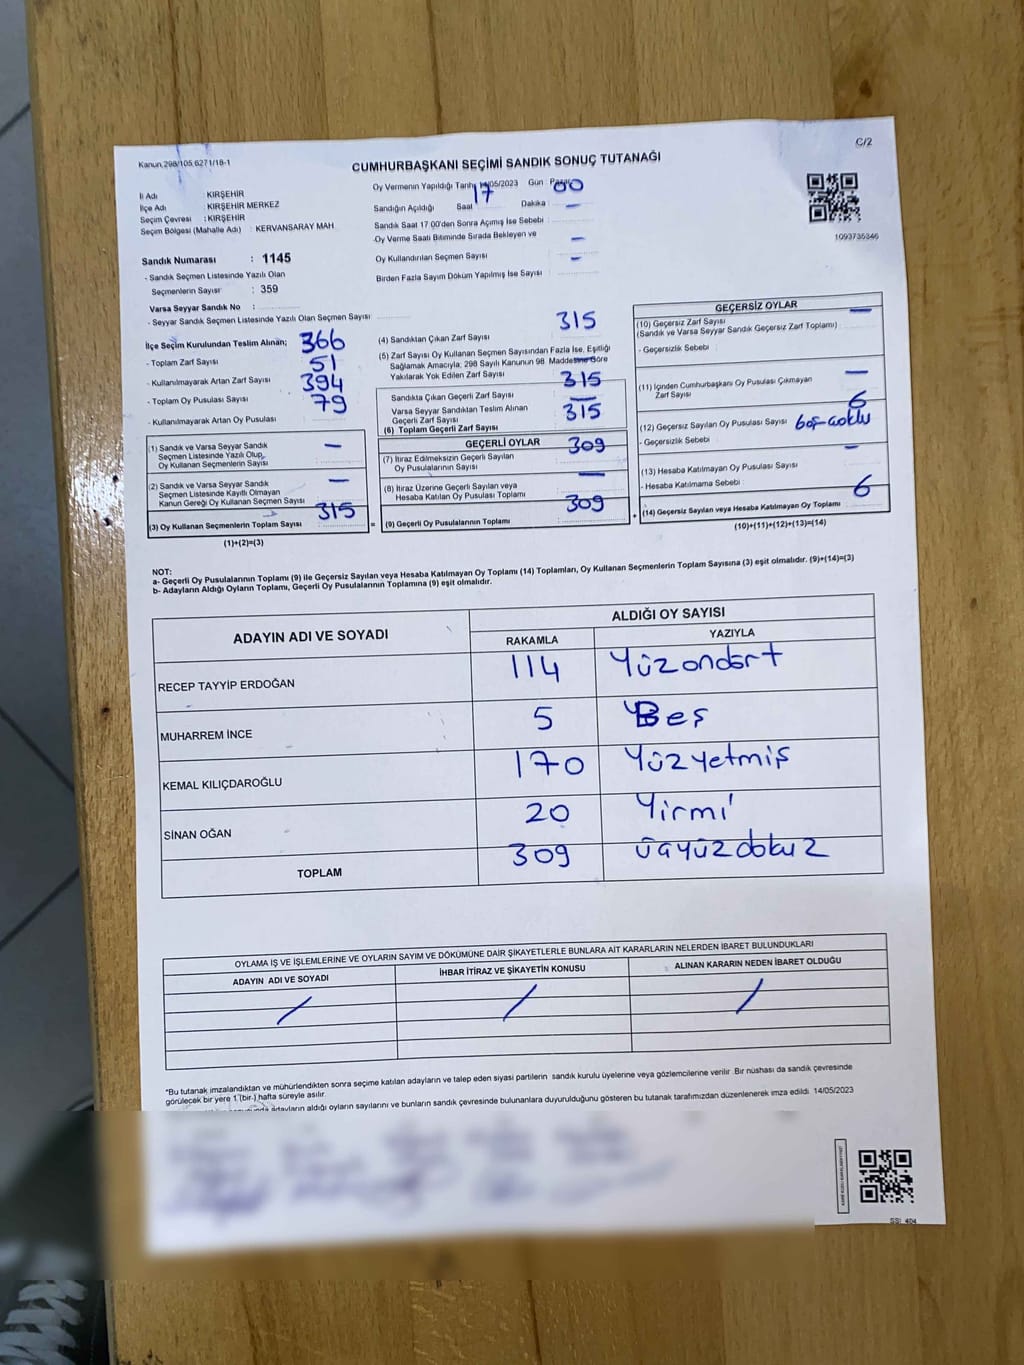 Kanun,298/105,6271/18-1
C/2
CUMHURBAŞKANI SEÇİMİ SANDIK SONUÇ TUTANAĞI
İl Adı : KIRŞEHİR
İlçe Adı : KIRŞEHİR MERKEZ
Seçim Çevresi : KIRŞEHİR
Seçim Bölgesi (Mahalle Adı) : KERVANSARAY MAH.
Sandık Numarası : 1145
- Sandık Seçmen Listesinde Yazılı Olan
Seçmenlerin Sayısı : 359
Varsa Seyyar Sandık No :
- Seyyar Sandık Seçmen Listesinde Yazılı Olan Seçmen Sayısı
Oy Vermenin Yapıldığı Tarih 14/05/2023 Gün : Pazar
Sandığın Açıldığı Saat 17 Dakika : 00
Sandık Saat 17 00'den Sonra Açılmış İse Sebebi : –
Oy Verme Saati Bitiminde Sırada Bekleyen ve
Oy Kullandırılan Seçmen Sayısı : –
Birden Fazla Sayım Döküm Yapılmış İse Sayısı : –
1093735346
İlçe Seçim Kurulundan Teslim Alınan;
- Toplam Zarf Sayısı 366
- Kullanılmayarak Artan Zarf Sayısı 51
- Toplam Oy Pusulası Sayısı 394
- Kullanılmayarak Artan Oy Pusulası 79
(1) Sandık ve Varsa Seyyar Sandık
Seçmen Listesinde Yazılı Olup,
Oy Kullanan Seçmenlerin Sayısı –
(2) Sandık ve Varsa Seyyar Sandık
Seçmen Listesinde Kayıtlı Olmayan
Kanun Gereği Oy Kullanan Seçmen Sayısı –
(3) Oy Kullanan Seçmenlerin Toplam Sayısı 315
(1)+(2)=(3)
(4) Sandıktan Çıkan Zarf Sayısı 315
(5) Zarf Sayısı Oy Kullanan Seçmen Sayısından Fazla İse, Eşitliği
Sağlamak Amacıyla; 298 Sayılı Kanunun 98. Maddesine Göre
Yakılarak Yok Edilen Zarf Sayısı –
Sandıkta Çıkan Geçerli Zarf Sayısı 315
Varsa Seyyar Sandıktan Teslim Alınan
Geçerli Zarf Sayısı –
(6) Toplam Geçerli Zarf Sayısı 315
GEÇERLİ OYLAR
(7) İtiraz Edilmeksizin Geçerli Sayılan
Oy Pusulalarının Sayısı 309
(8) İtiraz Üzerine Geçerli Sayılan veya
Hesaba Katılan Oy Pusulası Toplamı –
(9) Geçerli Oy Pusulalarının Toplamı 309
GEÇERSİZ OYLAR
(10) Geçersiz Zarf Sayısı –
(Sandık ve Varsa Seyyar Sandık Geçersiz Zarf Toplamı)
- Geçersizlik Sebebi
(11) İçinden Cumhurbaşkanı Oy Pusulası Çıkmayan
Zarf Sayısı –
(12) Geçersiz Sayılan Oy Pusulası Sayısı 6
- Geçersizlik Sebebi : boş-çoklu
(13) Hesaba Katılmayan Oy Pusulası Sayısı –
- Hesaba Katılmama Sebebi :
(14) Geçersiz Sayılan veya Hesaba Katılmayan Oy Toplamı 6
(10)+(11)+(12)+(13)=(14)
NOT:
a- Geçerli Oy Pusulalarının Toplamı (9) ile Geçersiz Sayılan veya Hesaba Katılmayan Oy Toplamı (14) Toplamları, Oy Kullanan Seçmenlerin Toplam Sayısına (3) eşit olmalıdır. (9)+(14)=(3)
b- Adayların Aldığı Oyların Toplamı, Geçerli Oy Pusulalarının Toplamına (9) eşit olmalıdır.
ADAYIN ADI VE SOYADI
ALDIĞI OY SAYISI
RAKAMLA YAZIYLA
RECEP TAYYİP ERDOĞAN 114 Yüzondört
MUHARREM İNCE 5 Beş
KEMAL KILIÇDAROĞLU 170 Yüzyetmiş
SİNAN OĞAN 20 Yirmi
TOPLAM 309 üçyüzdokuz
OYLAMA İŞ VE İŞLEMLERİNE VE OYLARIN SAYIM VE DÖKÜMÜNE DAİR ŞİKAYETLERLE BUNLARA AİT KARARLARIN NELERDEN İBARET BULUNDUKLARI
ADAYIN ADI VE SOYADI İHBAR İTİRAZ VE ŞİKAYETİN KONUSU ALINAN KARARIN NEDEN İBARET OLDUĞU
/ / /
*Bu tutanak imzalandıktan ve mühürlendikten sonra seçime katılan adayların ve talep eden siyasi partilerin sandık kurulu üyelerine veya gözlemcilerine verilir. Bir nüshası da sandık çevresinde
görülecek bir yere 1 (bir-) hafta süreyle asılır.
adayların aldığı oyların sayılarını ve bunların sandık çevresinde bulunanlara duyurulduğunu gösteren bu tutanak tarafımızdan düzenlenerek imza edildi. 14/05/2023
SSI: 404